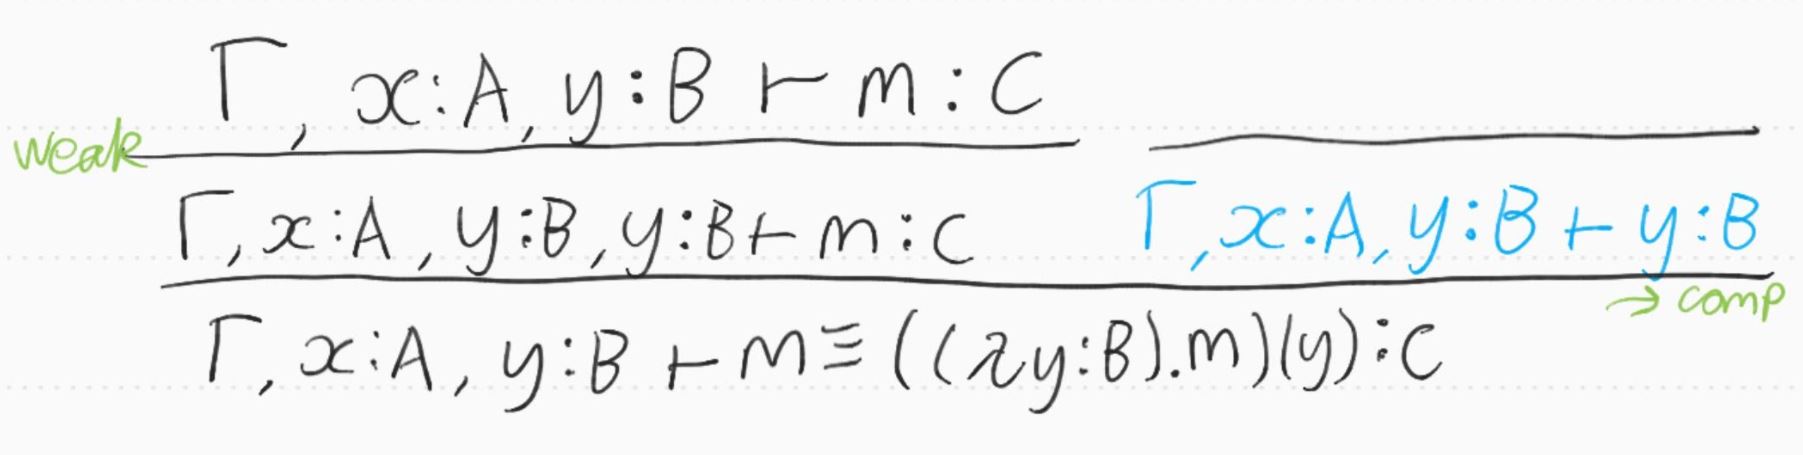 Γ, x:A, y:B ⊢ m:C
weak
Γ, x:A, y:B, y:B ⊢ m:C Γ, x:A, y:B ⊢ y:B
→ comp
Γ, x:A, y:B ⊢ m ≡ ((λy:B).m)(y):C